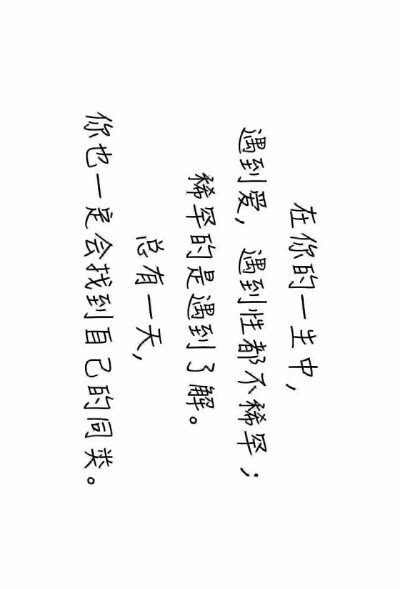 在你的一生中，
遇到爱，遇到性都不稀罕；
稀罕的是遇到了解。
总有一天，
你也一定会找到自己的同类。